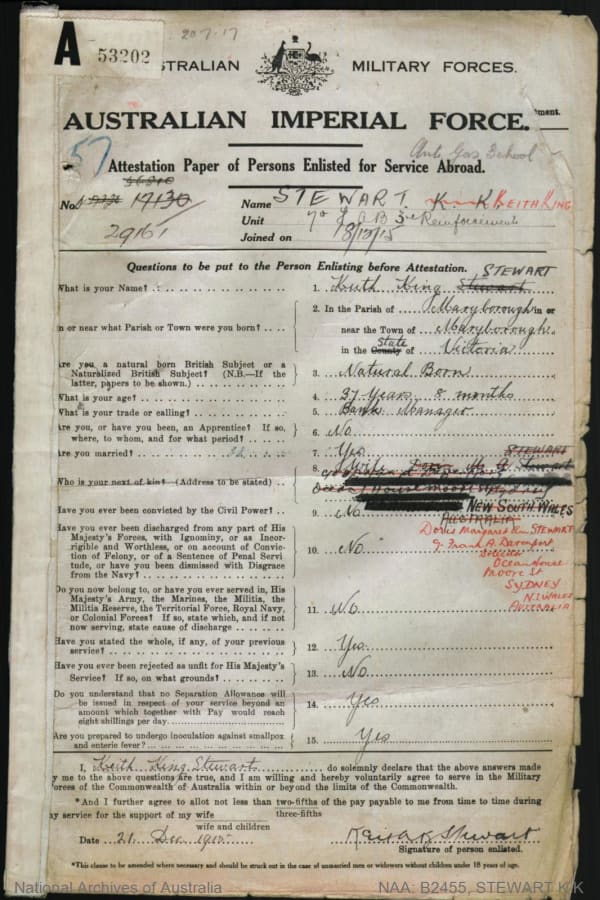 20-7-17
A 53202
STRALIAN MILITARY FORCES.
AUSTRALIAN IMPERIAL FORCE.
tment.
57
Anti Gas School
Attestation Paper of Persons Enlisted for Service Abroad.
No. 17130
29161
Name STEWART. K. K. KEITH KING
Unit 7th L.A.B 3rd Reinforcements
Joined on 18/12/15
Questions to be put to the Person Enlisting before Attestation.
STEWART
What is your Name? 1. Keith King Stewart
In or near what Parish or Town were you born? 2. In the Parish of Maryborough in or
near the Town of Maryborough
in the County State of Victoria
Are you a natural born British Subject or a
Naturalized British Subject? (N.B.—If the
latter, papers to be shown.) 3. Natural Born
What is your age? 4. 37 Years 8 months
What is your trade or calling? 5. Bank Manager
Are you, or have you been, an Apprentice? If so,
where, to whom, and for what period? 6. No
Are you married? 7. Yes
STEWART
Who is your next of kin? (Address to be stated) 8.
Have you ever been convicted by the Civil Power? 9. No
NEW SOUTH WALES
AUSTRALIA
Doris Margaret STEWART
Frank A. Davenport
Solicitor
Ocean House
Moore St
SYDNEY
N.S.WALES
AUSTRALIA
Have you ever been discharged from any part of His
Majesty's Forces, with Ignominy, or as Incor-
rigible and Worthless, or on account of Convic-
tion of Felony, or of a Sentence of Penal Servi
tude, or have you been dismissed with Disgrace
from the Navy? 10. No
Do you now belong to, or have you ever served in, His
Majesty's Army, the Marines, the Militia, the
Militia Reserve, the Territorial Force, Royal Navy,
or Colonial Forces? If so, state which, and if not
now serving, state cause of discharge 11. No
Have you stated the whole, if any, of your previous
service? 12. Yes
Have you ever been rejected as unfit for His Majesty's
Service? If so, on what grounds? 13. No
Do you understand that no Separation Allowance will
be issued in respect of your service beyond an
amount which together with Pay would reach
eight shillings per day 14. Yes
Are you prepared to undergo inoculation against smallpox
and enteric fever? 15. Yes
I, Keith King Stewart do solemnly declare that the above answers made
by me to the above questions are true, and I am willing and hereby voluntarily agree to serve in the Military
Forces of the Commonwealth of Australia within or beyond the limits of the Commonwealth.
*And I further agree to allot not less than two-fifths of the pay payable to me from time to time during
three-fifths
my service for the support of my wife
wife and children
Date 21 Dec 1915 Keith K Stewart
Signature of person enlisted.
*This clause to be amended where necessary and should be struck out in the case of unmarried men or widowers without children under 18 years of age.
National Archives of Australia NAA: B2455, STEWART K K